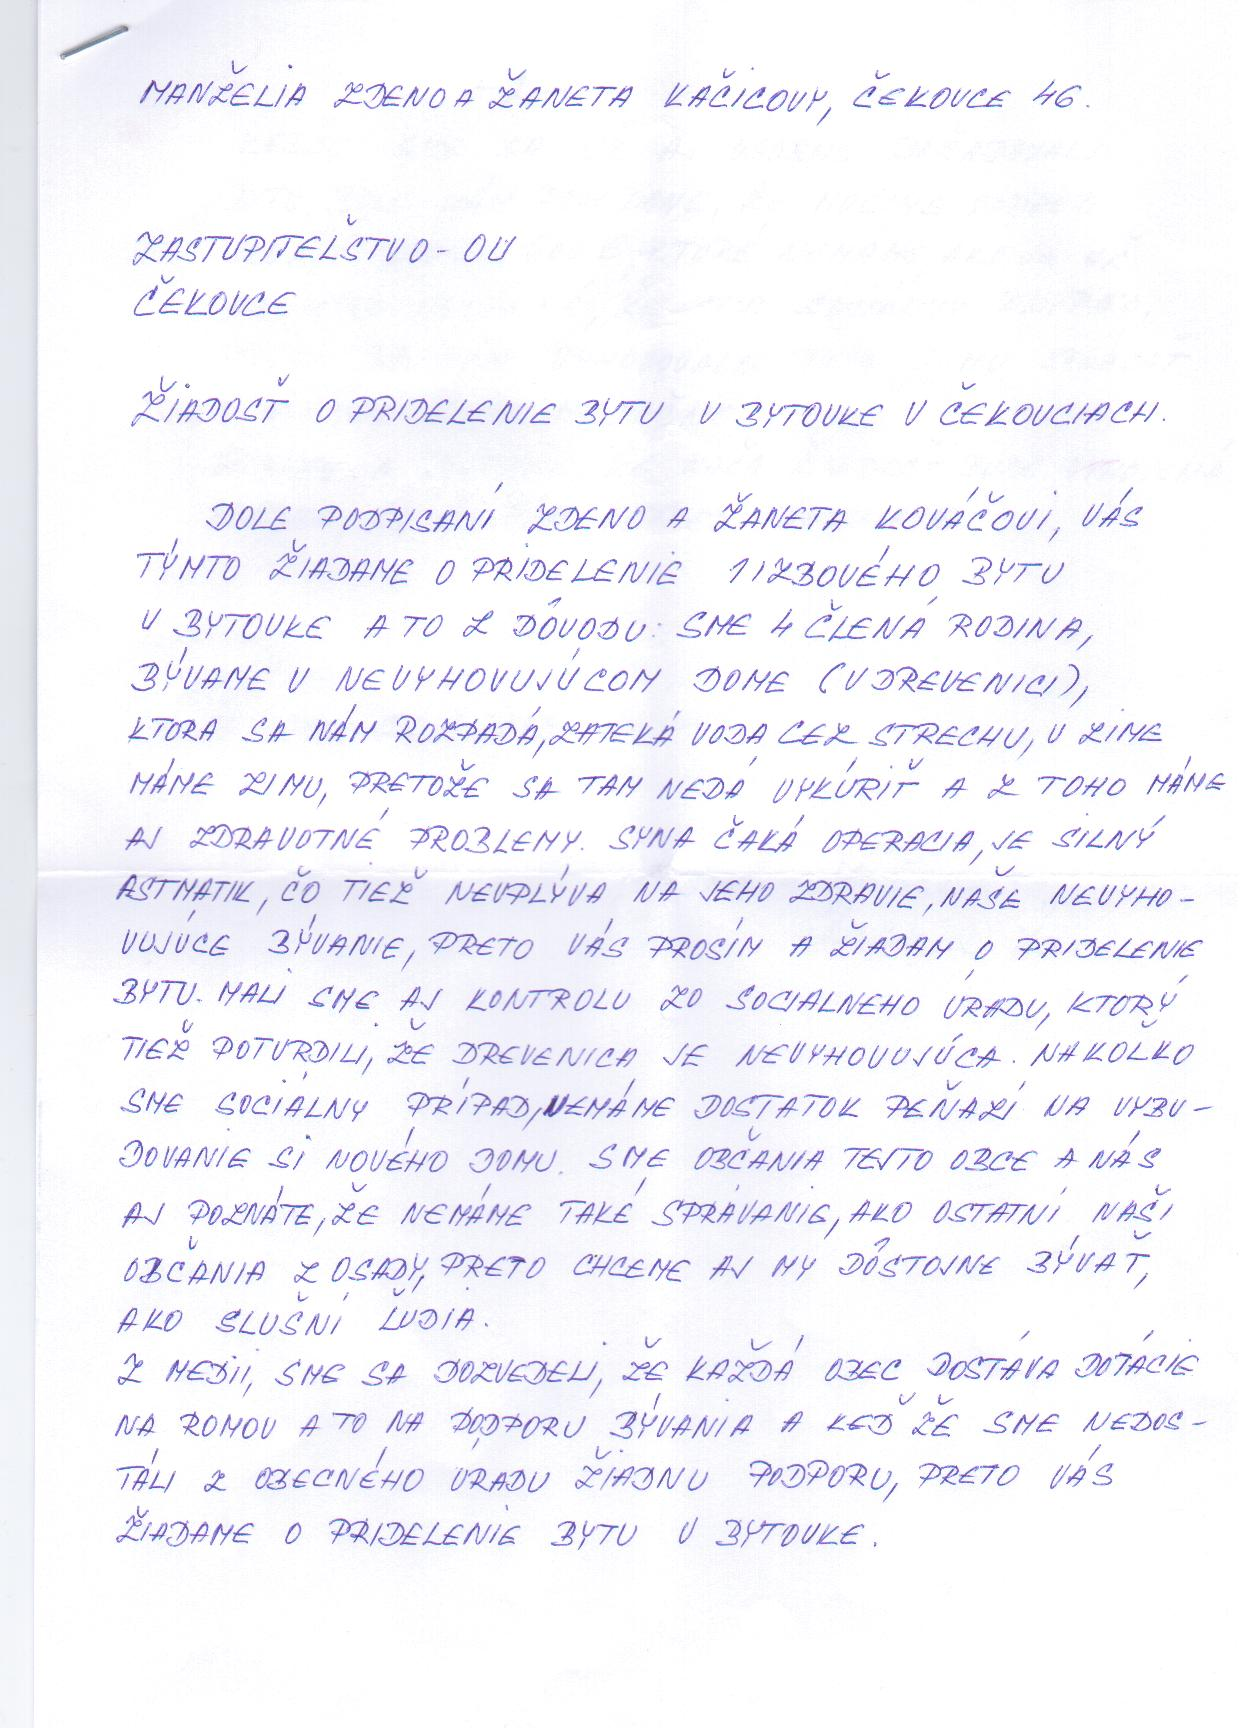 MANŽELIA ZDENO A ŽANETA KAČICOVY, ČEKOVCE 46.
ZASTUPITEĽŠTVO - OU
ČEKOVCE
ŽIADOSŤ O PRIDELENIE BYTU V BYTOVKE V ČEKOVCIACH.
DOLE PODPISANÍ ZDENO A ŽANETA KOVÁČOVI, VÁS
TÝMTO ŽIADAME O PRIDELENIE 1 IZBOVÉHO BYTU
V BYTOVKE A TO Z DÔVODU: SME 4 ČLENÁ RODINA,
BÝVAME V NEVYHOVUJÚCOM DOME (V DREVENICI),
KTORA SA NÁM ROZPADÁ, ZATEKÁ VODA CEZ STRECHU, V ZIME
MÁME ZIMU, PRETOŽE SA TAM NEDÁ VYKÚRIŤ A Z TOHO MÁME
AJ ZDRAVOTNÉ PROBLEMY. SYNA ČAKÁ OPERACIA, JE SILNÝ
ASTMATIK, ČO TIEŽ NEVPLÝVA NA JEHO ZDRAVIE, NAŠE NEVYHO-
VUJÚCE BÝVANIE, PRETO VÁS PROSÍM A ŽIADAM O PRIDELENIE
BYTU. MALI SME AJ KONTROLU ZO SOCIALNEHO ÚRADU, KTORÝ
TIEŽ POTVRDILI, ŽE DREVENICA JE NEVYHOVUJÚCA. NAKOĽKO
SME SOCIÁLNY PRÍPAD, NEMÁME DOSTATOK PEŇAZÍ NA VYBU-
DOVANIE SI NOVÉHO DOMU. SME OBČANIA TEJTO OBCE A NÁS
AJ POZNÁTE, ŽE NEMÁME TAKÉ SPRÁVANIE, AKO OSTATNÍ NAŠI
OBČANIA Z OSADY, PRETO CHCEME AJ MY DÔSTOJNE BÝVAŤ,
AKO SLUŠNÍ ĽUDIA.
Z MEDII, SME SA DOZVEDELI, ŽE KAŽDÁ OBEC DOSTÁVA DOTÁCIE
NA ROMOV A TO NA PODPORU BÝVANIA A KEĎ ŽE SME NEDOS-
TÁLI Z OBECNÉHO ÚRADU ŽIADNU PODPORU, PRETO VÁS
ŽIADAME O PRIDELENIE BYTU V BYTOVKE.